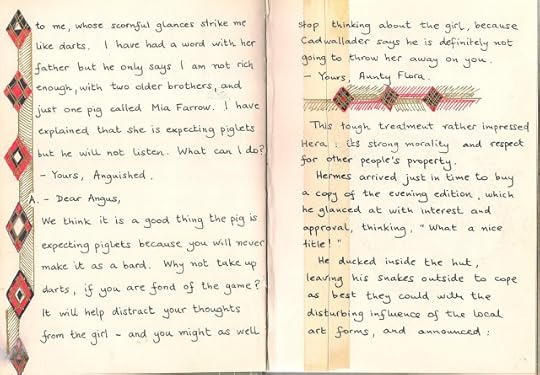 to me, whose scornful glances strike me
like darts. I have had a word with her
father but he only says I am not rich
enough, with two older brothers, and
just one pig called Mia Farrow. I have
explained that she is expecting piglets
but he will not listen. What can I do?
- Yours, Anguished.
A. - Dear Angus,
We think it is a good thing the pig is
expecting piglets because you will never
make it as a bard. Why not take up
darts, if you are fond of the game?
It will help distract your thoughts
from the girl - and you might as well
stop thinking about the girl, because
Cadwallader says he is definitely not
going to throw her away on you.
- Yours, Aunty Flora.
This tough treatment rather impressed
Hera: its strong morality and respect
for other people's property.
Hermes arrived just in time to buy
a copy of the evening edition, which
he glanced at with interest and
approval, thinking, "What a nice
title!"
He ducked inside the hut,
leaving his snakes outside to cope
as best they could with the
disturbing influence of the local
art forms, and announced: